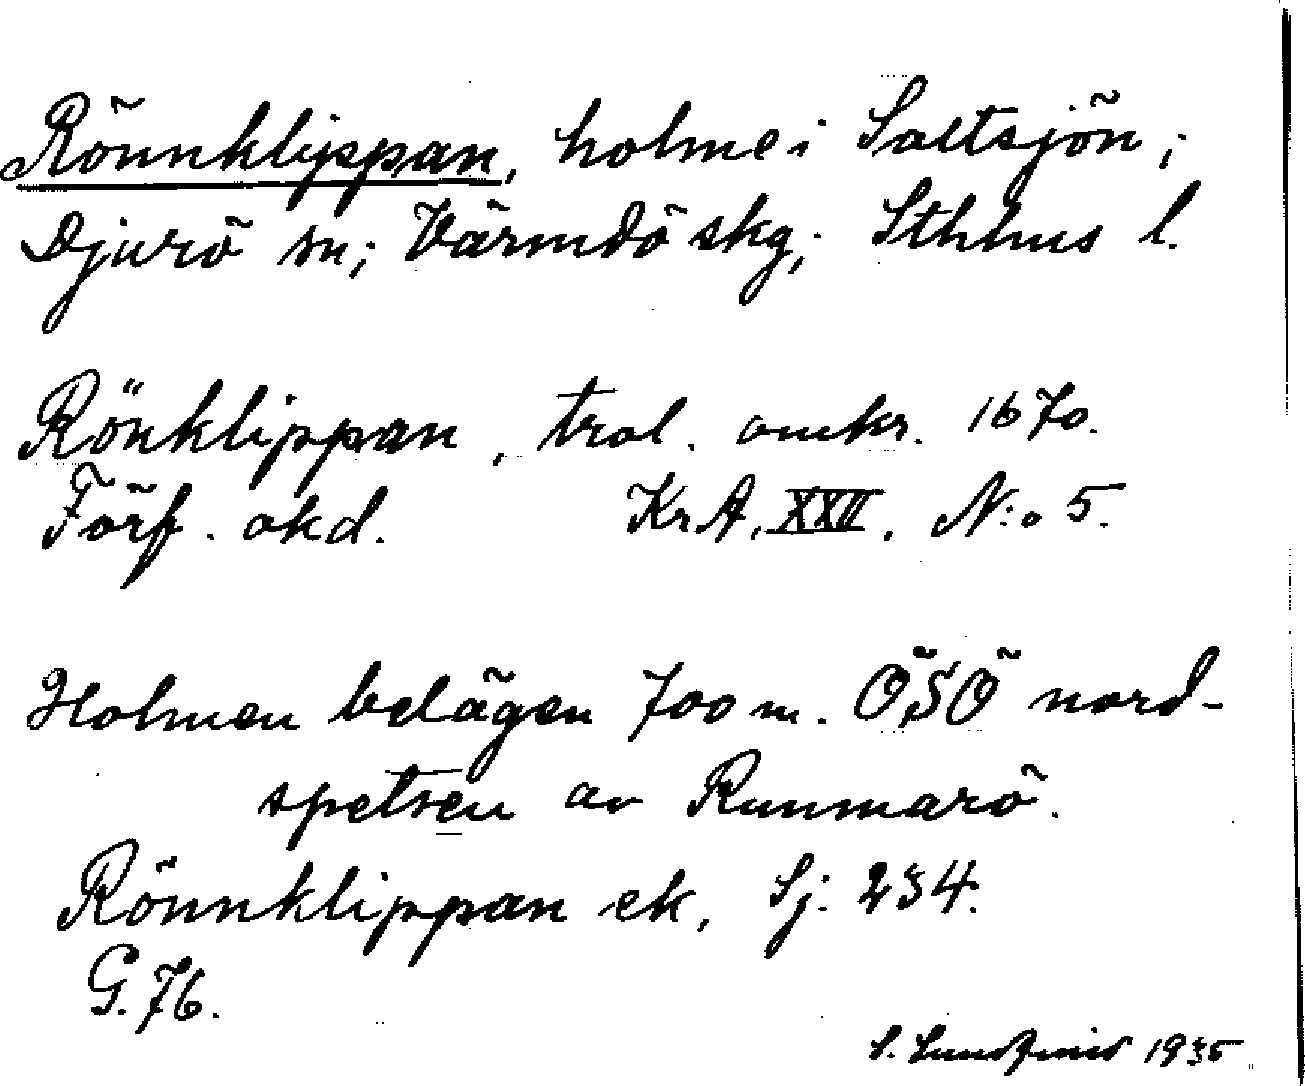 Rönnklippan, holme i Saltsjön;
Djurö sn; Värmdö skg; Sthlms l.
Rönklippan, trol. omkr. 1670.
Förf. okd. KrA, XXII, N:o 5.
Holmen belägen 700 m. ÖSÖ nord-
spetsen av Runmarö.
Rönnklippan ek, Sj: 234.
G. 76.
S. 1935